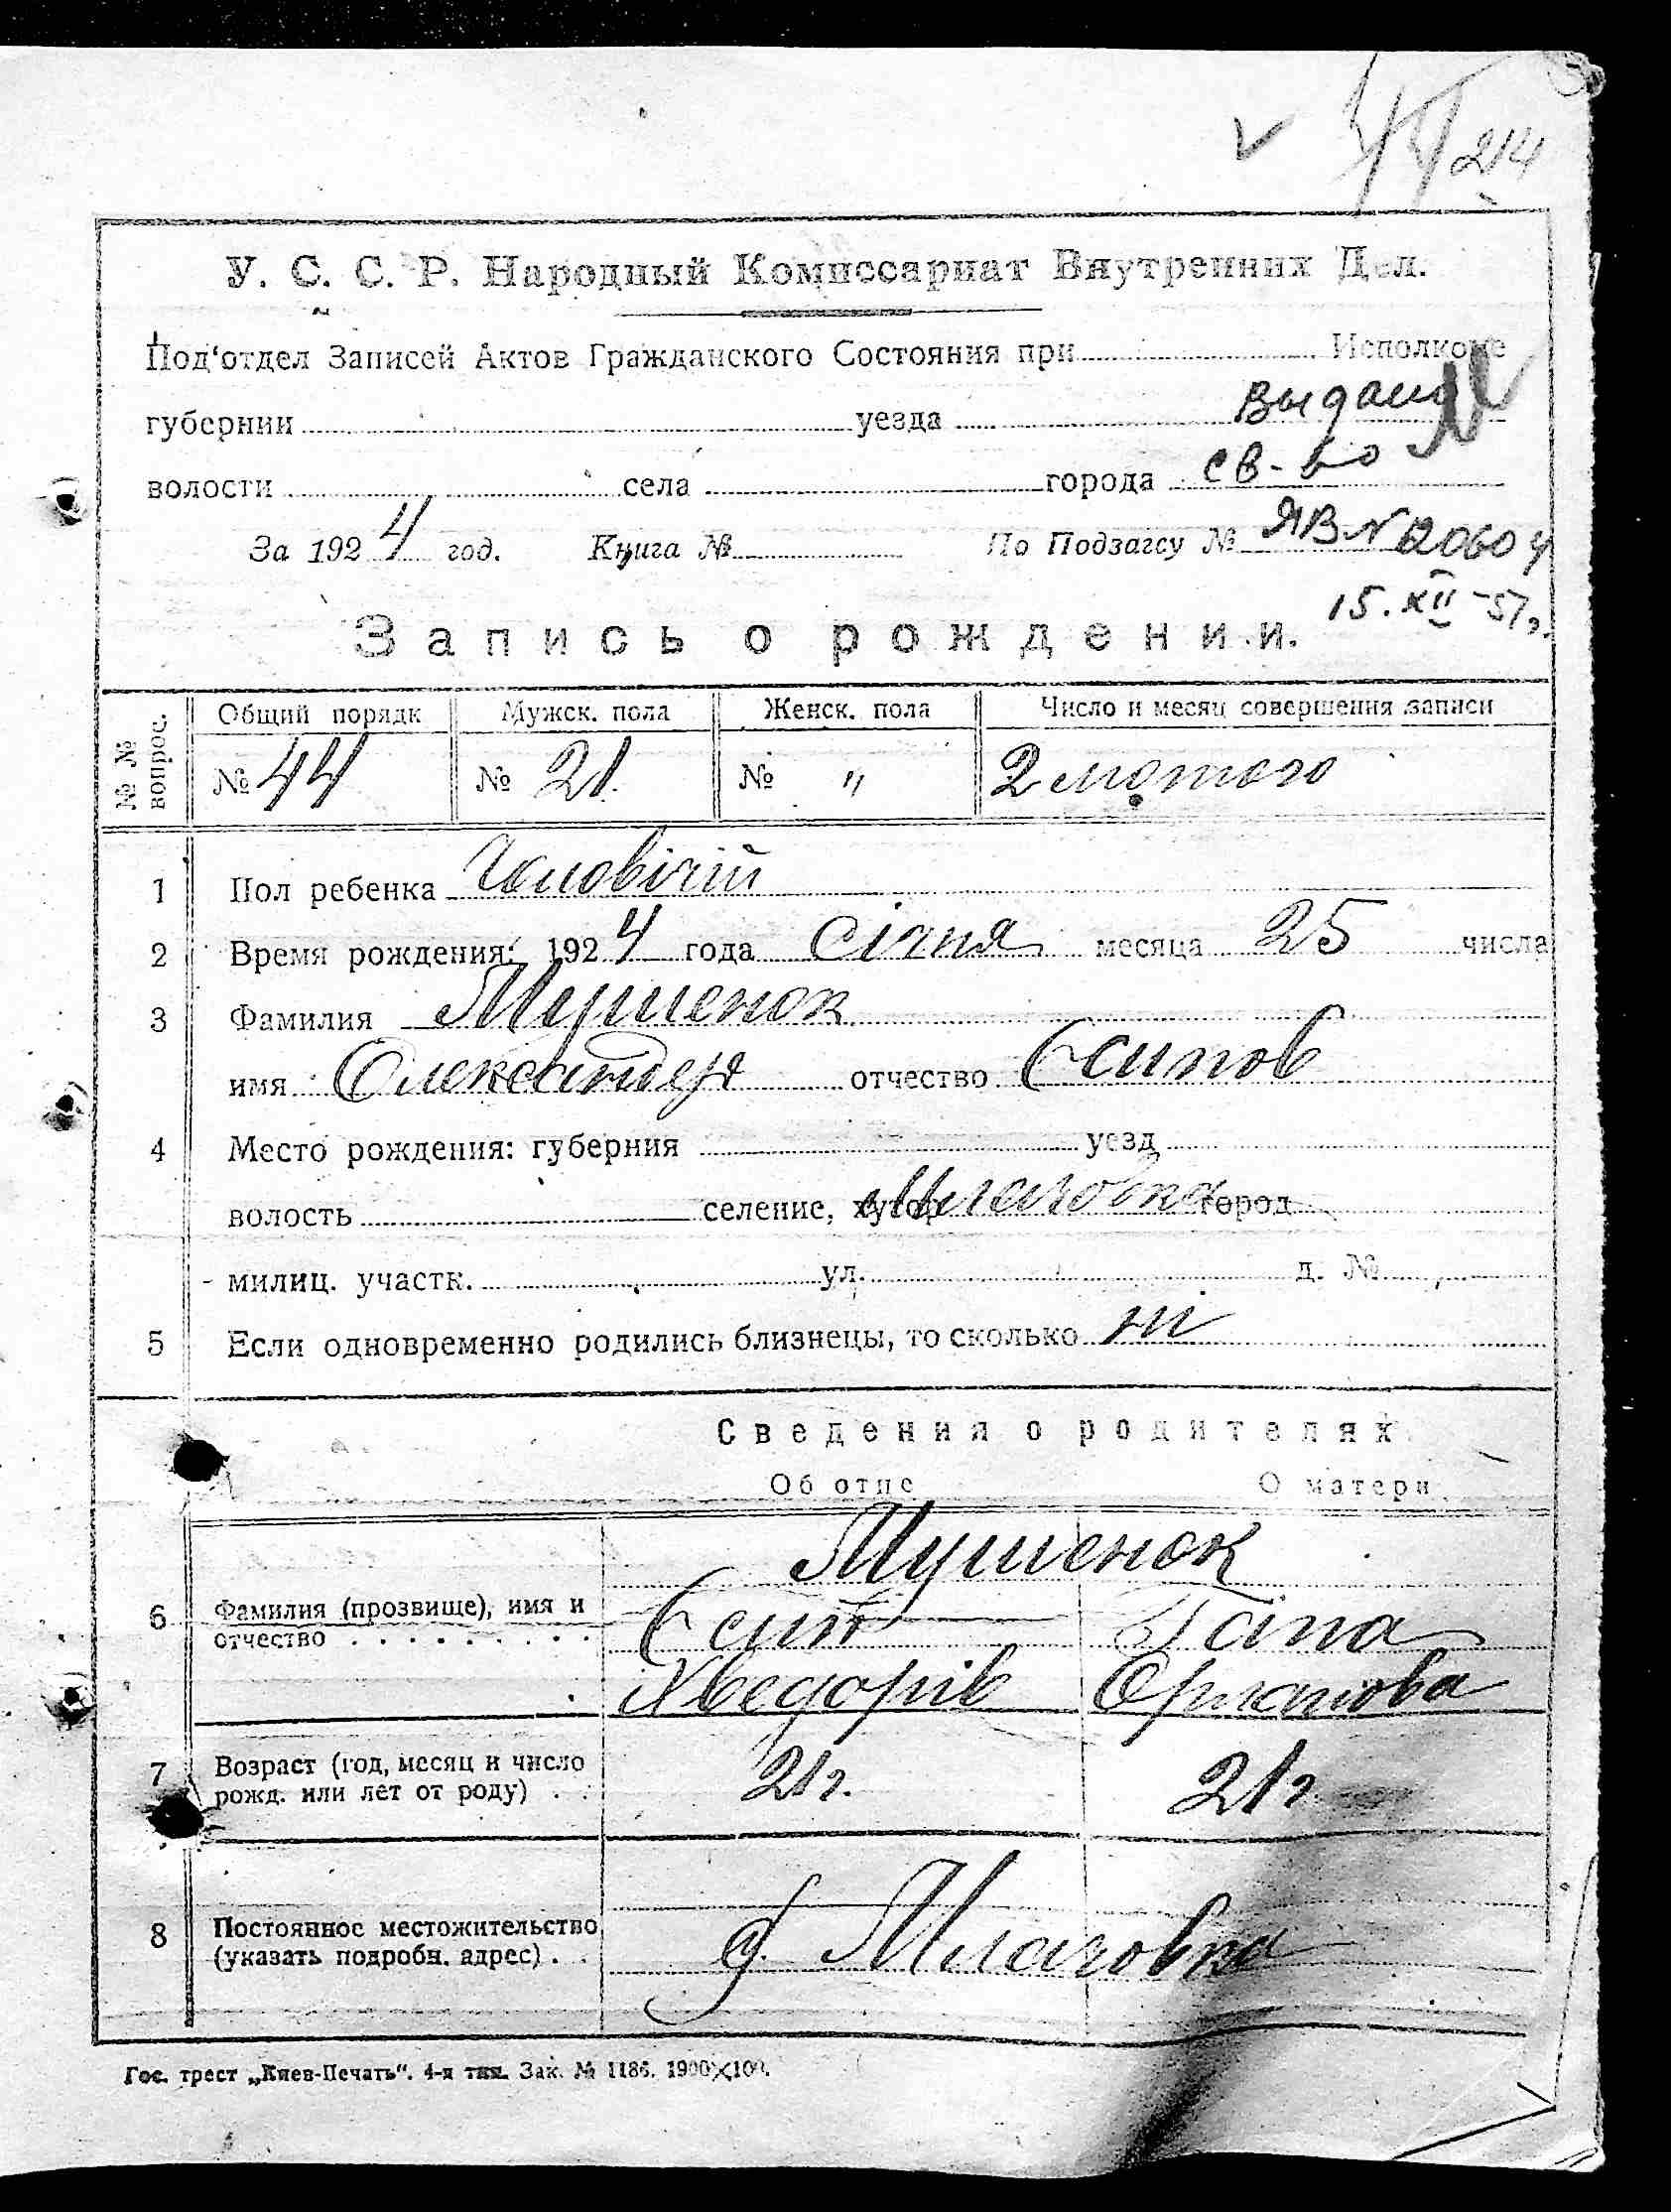 44 214
У. С. С. Р. Народный Комиссариат Внутренних Дел.
Под'отдел Записей Актов Гражданского Состояния при Исполкоме
губернии уезда Выдано
волости села города св-во
За 1924 год. Книга № По Подзагсу № ЯВ № 020604
15.XII-51г.
Запись о рождении.
№ № вопрос. Общий порядк Мужск. пола Женск. пола Число и месяц совершения записи
№ 44 № 21. № " 2 лютого
1 Пол ребенка Чоловічий
2 Время рождения: 1924 года Січня месяца 25 числа
3 Фамилия Мушенок
имя Олександер отчество Єсипов
4 Место рождения: губерния уезд
волость селение, хутор город
милиц. участк. ул. д. №
5 Если одновременно родились близнецы, то сколько ні
Сведения о родителях
Об отце О матери
Мушенок
6 Фамилия (прозвище), имя и Єсип Гапа
отчество . . . . . . . . . Хведорів
7 Возраст (год, месяц и число 21г. 21г
рожд. или лет от роду) . .
8 Постоянное местожительство
(указать подробн. адрес) . . с.
Гос. трест „Киев-Печать". 4-я тип. Зак. № 1186. 1900×100.